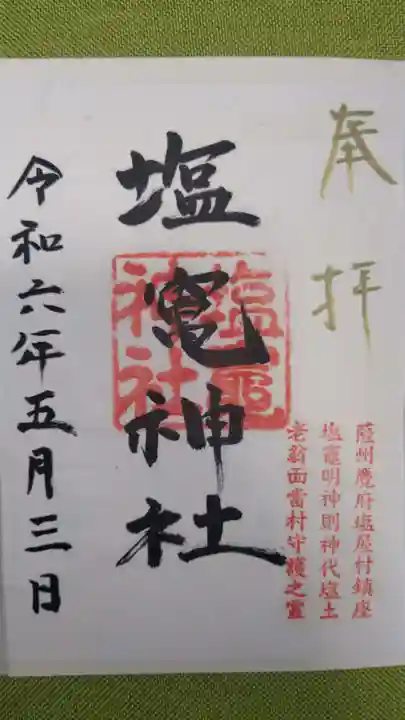 奉拝
薩州麑府塩屋村鎮座
塩竈明神則神代塩土
老翁而當村守護之霊
塩竈神社
塩竈神社
令和六年五月三日